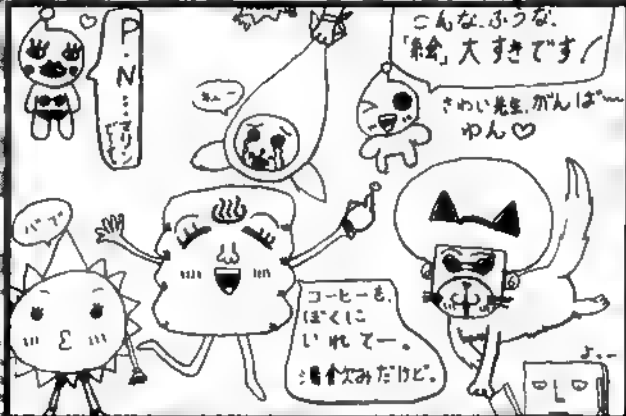 P.N…マリン
でーす
こんな、ふうな、
「絵」大すきです!
さわい先生、がんばー
わん♡
コーヒーも、
ぼくに
いれてー。
湯飲みだけど。
よー